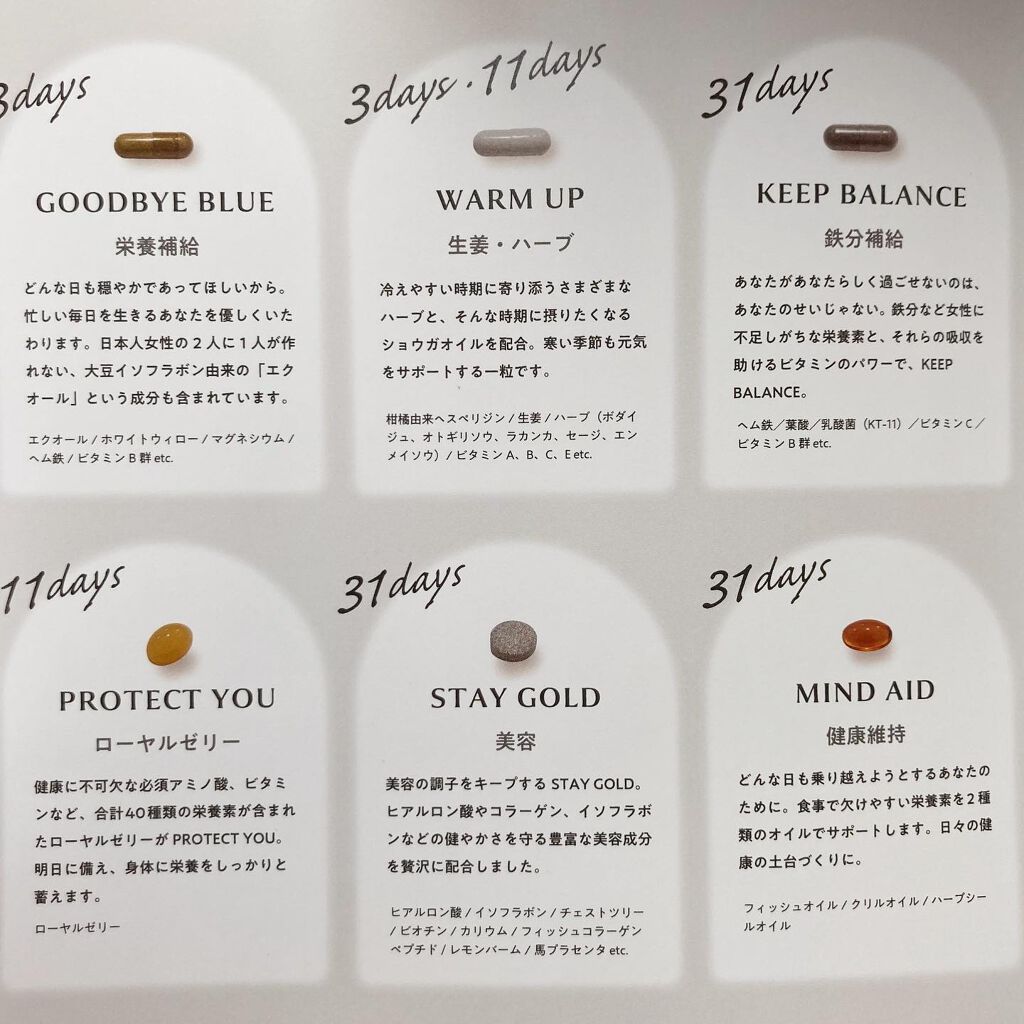 3days
GOODBYE BLUE
栄養補給
どんな日も穏やかであってほしいから。
忙しい毎日を生きるあなたを優しくいた
わります。日本人女性の2人に1人が作
れない、大豆イソフラボン由来の「エク
オール」という成分も含まれています。
エクオール / ホワイトウィロー / マグネシウム /
ヘム鉄 / ビタミンB群 etc.
3days・11days
WARM UP
生姜・ハーブ
冷えやすい時期に寄り添うさまざまな
ハーブと、そんな時期に摂りたくなる
ショウガオイルを配合。寒い季節も元気
をサポートする一粒です。
柑橘由来ヘスペリジン / 生姜 / ハーブ（ボダイ
ジュ、オトギリソウ、ラカンカ、セージ、エン
メイソウ）/ ビタミンA、B、C、E etc.
31days
KEEP BALANCE
鉄分補給
あなたがあなたらしく過ごせないのは、
あなたのせいじゃない。鉄分など女性に
不足しがちな栄養素と、それらの吸収を
助けるビタミンのパワーで、KEEP
BALANCE。
ヘム鉄／葉酸／乳酸菌（KT-11）／ビタミンC／
ビタミンB群 etc.
11days
PROTECT YOU
ローヤルゼリー
健康に不可欠な必須アミノ酸、ビタミ
ンなど、合計40種類の栄養素が含まれ
たローヤルゼリーがPROTECT YOU。
明日に備え、身体に栄養をしっかりと
蓄えます。
ローヤルゼリー
31days
STAY GOLD
美容
美容の調子をキープするSTAY GOLD。
ヒアルロン酸やコラーゲン、イソフラボ
ンなどの健やかさを守る豊富な美容成分
を贅沢に配合しました。
ヒアルロン酸 / イソフラボン / チェストツリー
/ ビオチン / カリウム / フィッシュコラーゲン
ペプチド / レモンバーム / 馬プラセンタ etc.
31days
MIND AID
健康維持
どんな日も乗り越えようとするあなたの
ために。食事で欠けやすい栄養素を2種
類のオイルでサポートします。日々の健
康の土台づくりに。
フィッシュオイル / クリルオイル / ハープシー
ルオイル